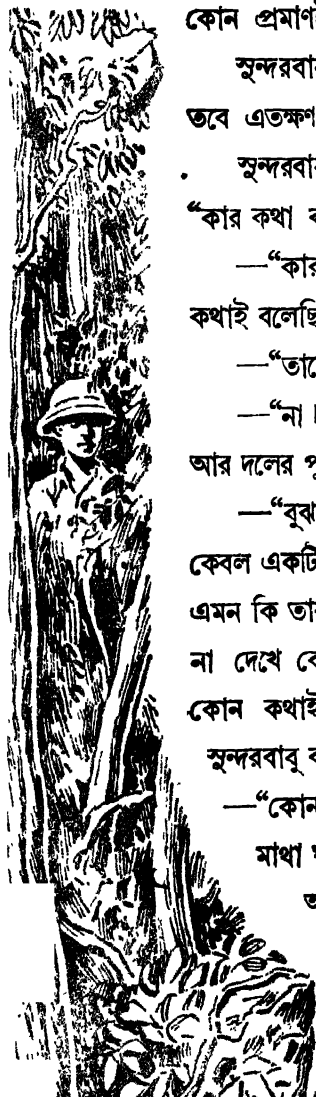 কোন প্রমাণ
সুন্দরবা
তবে এতক্ষণ
সুন্দরবা
“কার কথা ব
—“কার
কথাই বলেছি
—“তা
—“না
আর দলের প
—“বুঝ
কেবল একটি
এমন কি তা
না দেখে বে
কোন কথাই
সুন্দরবাবু ব
—“কোন
মাথা